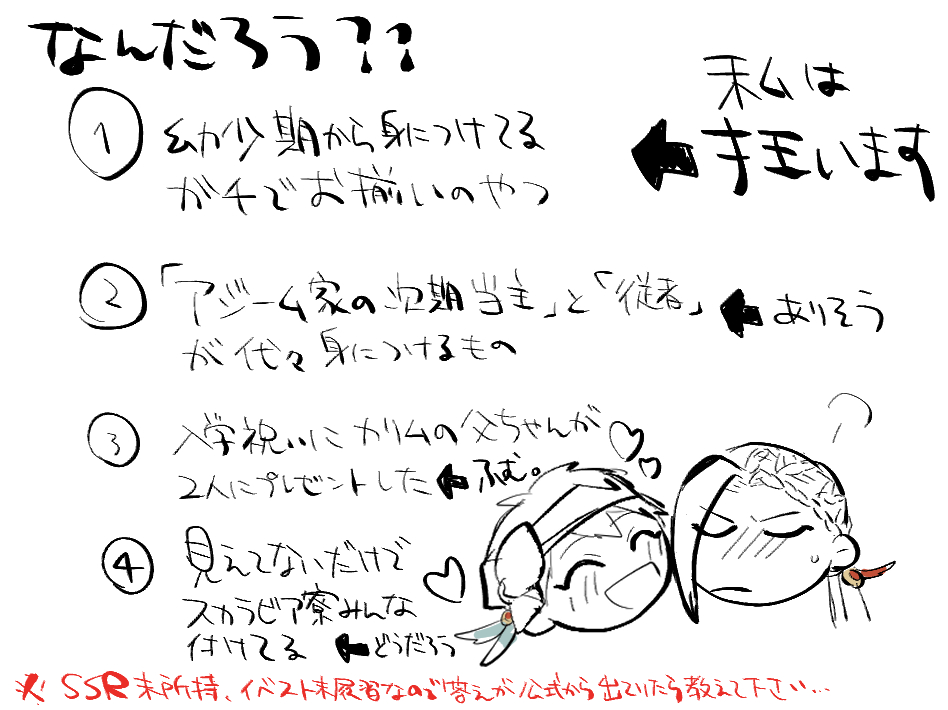 なんだろう??
① 幼少期から身につけてる
ガチでお揃いのやつ
私は
狂います
② 「アジーム家の次期当主」と「従者」
が代々身につけるもの
ありそう
③ 入学祝いにカリムの父ちゃんが
2人にプレゼントした
ふむ。
④ 見えてないだけで
スカラビア寮みんな
付けてる
どうだろう
?
※ SSR未所持、イベスト未履習なので答えが公式から出ていたら教えて下さい…